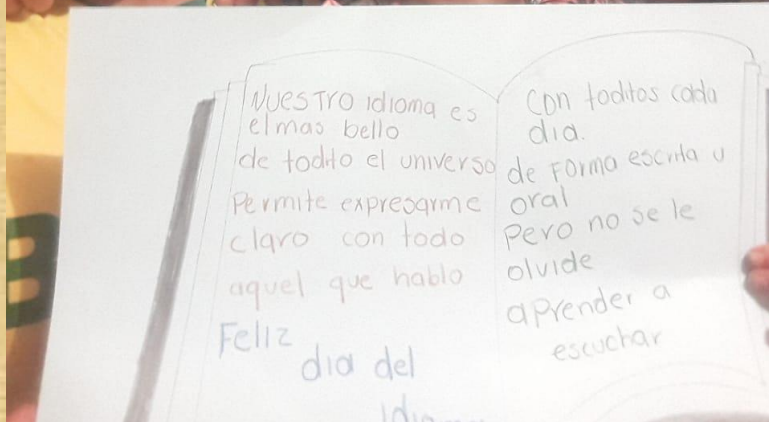 Nuestro idioma es
el mas bello
de todito el universo
Permite expresarme
claro con todo
aquel que hablo
Feliz
dia del
con toditos cada
dia.
de Forma escrita u
oral
Pero no se le
olvide
aprender a
escuchar